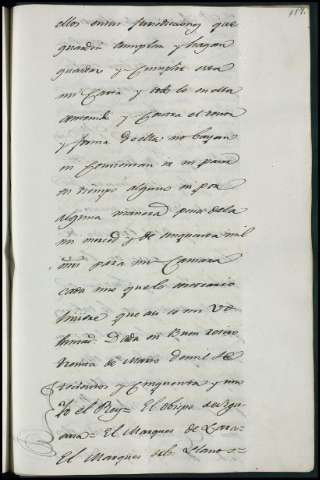 117.
ellos en sus Jurisdicciones que
guarden cumplan y hagan
guardar y Cumplir esta
mi Carta y todo lo en ella
contenido y Contra el tenor
y forma de ella no bayan
ni Consientan ir ni pasar
en tiempo alguno ni por
alguna manera pena dela
mi merced y de cinquenta mil
mrs para mi Camara
cada uno que lo contrario
hiciere que asi es mi Vo-
luntad Dada en Buen retiro
treinta de Marzo de mil se
tecientos y Cinquenta y uno
Yo el Rey= El obispo de
El Marques de
El Marques del Llano=